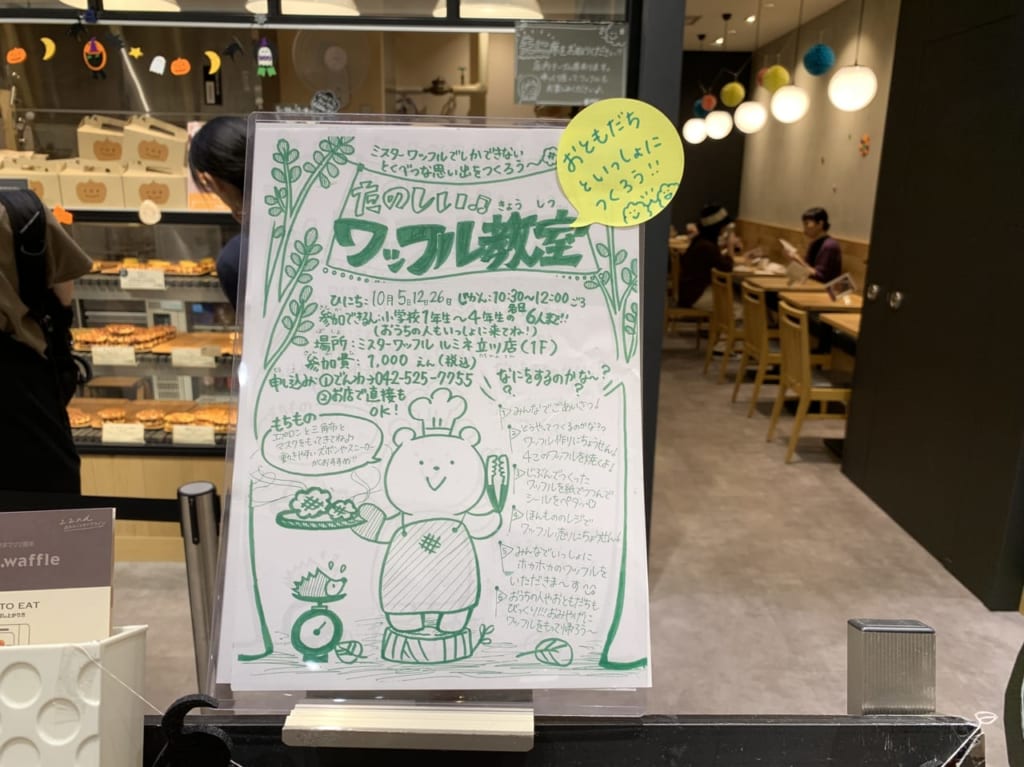 おともだち
といっしょに
つくろう!!
ミスターワッフルでしかできない
とくべつな思い出をつくろう〜
たのしい♪
きょう しつ
ワッフル教室
ひにち:10月5日12日26日 じかん:10:30〜12:00ごろ
参加できる人:小学校1年生〜4年生の各日6人まで!!
(おうちの人もいっしょに来てね!)
場所:ミスターワッフル ルミネ立川店(1F)
参加費:1,000えん(税込)
申し込み ①でんわ→042-525-7755
②お店で直接も
OK!
もちもの
エプロンと三角巾と
マスクをもってきてね♪
動きやすいズボンやスニーカー
がおすすめ!!
なにをするのかな〜?
1 みんなでごあいさつ!
2 どうやってつくるのかな?
ワッフル作りにちょうせん!
4このワッフルを焼くよ!
3 じぶんでつくった
ワッフルを紙でつつんで
シールをペタッ
4 ほんもののレジで
ワッフル売りにちょうせん!
5 みんなでいっしょに
ホカホカのワッフルを
いただきま〜す
6 おうちの人やおともだちも
びっくり!!!おみやげに
ワッフルをもって帰ろう〜
22nd
.waffle
TO EAT